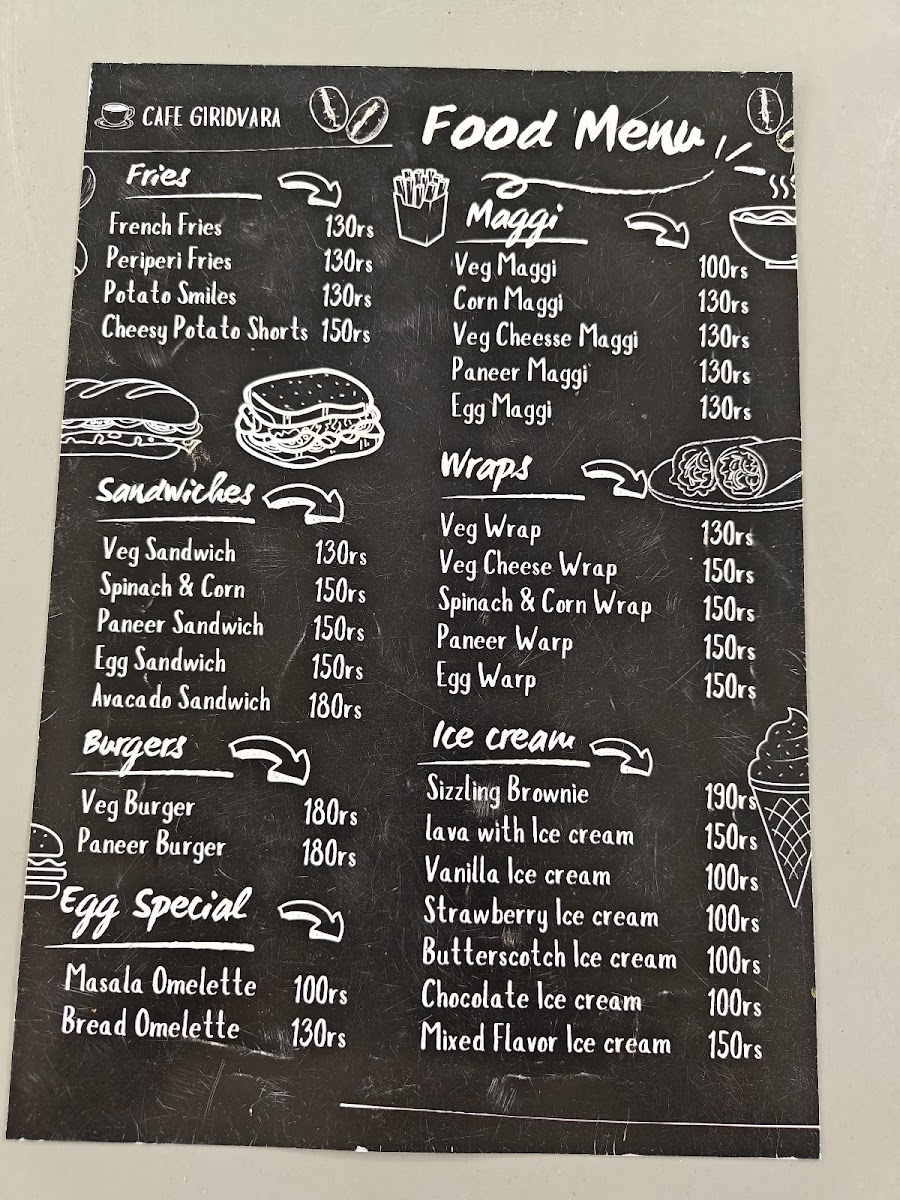 CAFE GIRIDVARA
Food Menu
Fries
French Fries 130rs
Periperi Fries 130rs
Potato Smiles 130rs
Cheesy Potato Shorts 150rs
Sandwiches
Veg Sandwich 130rs
Spinach & Corn 150rs
Paneer Sandwich 150rs
Egg Sandwich 150rs
Avacado Sandwich 180rs
Burgers
Veg Burger 180rs
Paneer Burger 180rs
Egg Special
Masala Omelette 100rs
Bread Omelette 130rs
Maggi
Veg Maggi 100rs
Corn Maggi 130rs
Veg Cheesse Maggi 130rs
Paneer Maggi 130rs
Egg Maggi 130rs
Wraps
Veg Wrap 130rs
Veg Cheese Wrap 150rs
Spinach & Corn Wrap 150rs
Paneer Warp 150rs
Egg Warp 150rs
Ice cream
Sizzling Brownie 190rs
lava with Ice cream 150rs
Vanilla Ice cream 100rs
Strawberry Ice cream 100rs
Butterscotch Ice cream 100rs
Chocolate Ice cream 100rs
Mixed Flavor Ice cream 150rs